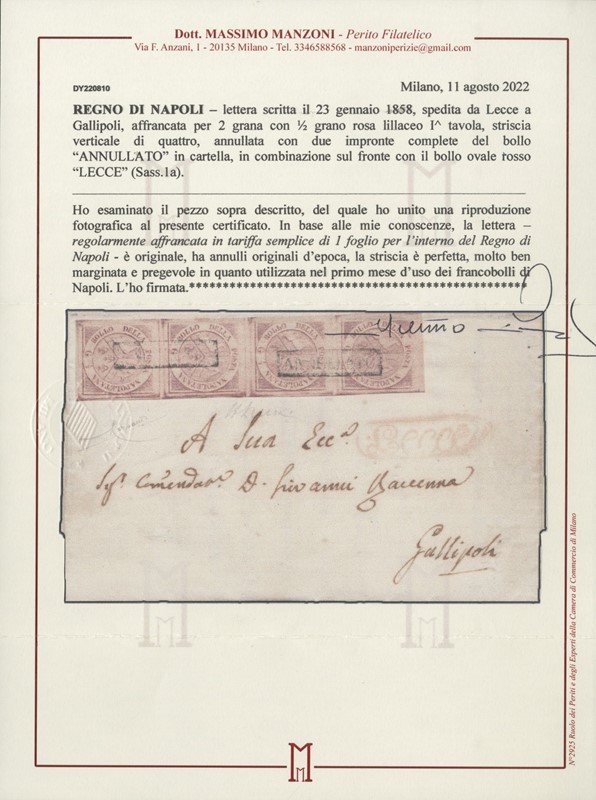 Dott. MASSIMO MANZONI - Perito Filatelico
Via F. Anzani, 1 - 20135 Milano - Tel. 3346588568 - manzoniperizie@gmail.com
DY220810
Milano, 11 agosto 2022
REGNO DI NAPOLI – lettera scritta il 23 gennaio 1858, spedita da Lecce a
Gallipoli, affrancata per 2 grana con ½ grano rosa lillaceo I^ tavola, striscia
verticale di quattro, annullata con due impronte complete del bollo
“ANNULLATO” in cartella, in combinazione sul fronte con il bollo ovale rosso
“LECCE” (Sass.1a).
Ho esaminato il pezzo sopra descritto, del quale ho unito una riproduzione
fotografica al presente certificato. In base alle mie conoscenze, la lettera –
regolarmente affrancata in tariffa semplice di 1 foglio per l'interno del Regno di
Napoli - è originale, ha annulli originali d'epoca, la striscia è perfetta, molto ben
marginata e pregevole in quanto utilizzata nel primo mese d'uso dei francobolli di
Napoli. L'ho firmata.**************************************************
BOLLO DELLA POSTA NAPOLETANA G
BOLLO DELLA POSTA NAPOLETANA G
BOLLO DELLA POSTA NAPOLETANA G
BOLLO DELLA POSTA NAPOLETANA G
ANNULLATO
Lecce
A Sua Ecc.ª
D. Giovanni Ravenna
Gallipoli
N°2925 Ruolo dei Periti e degli Esperti della Camera di Commercio di Milano
M